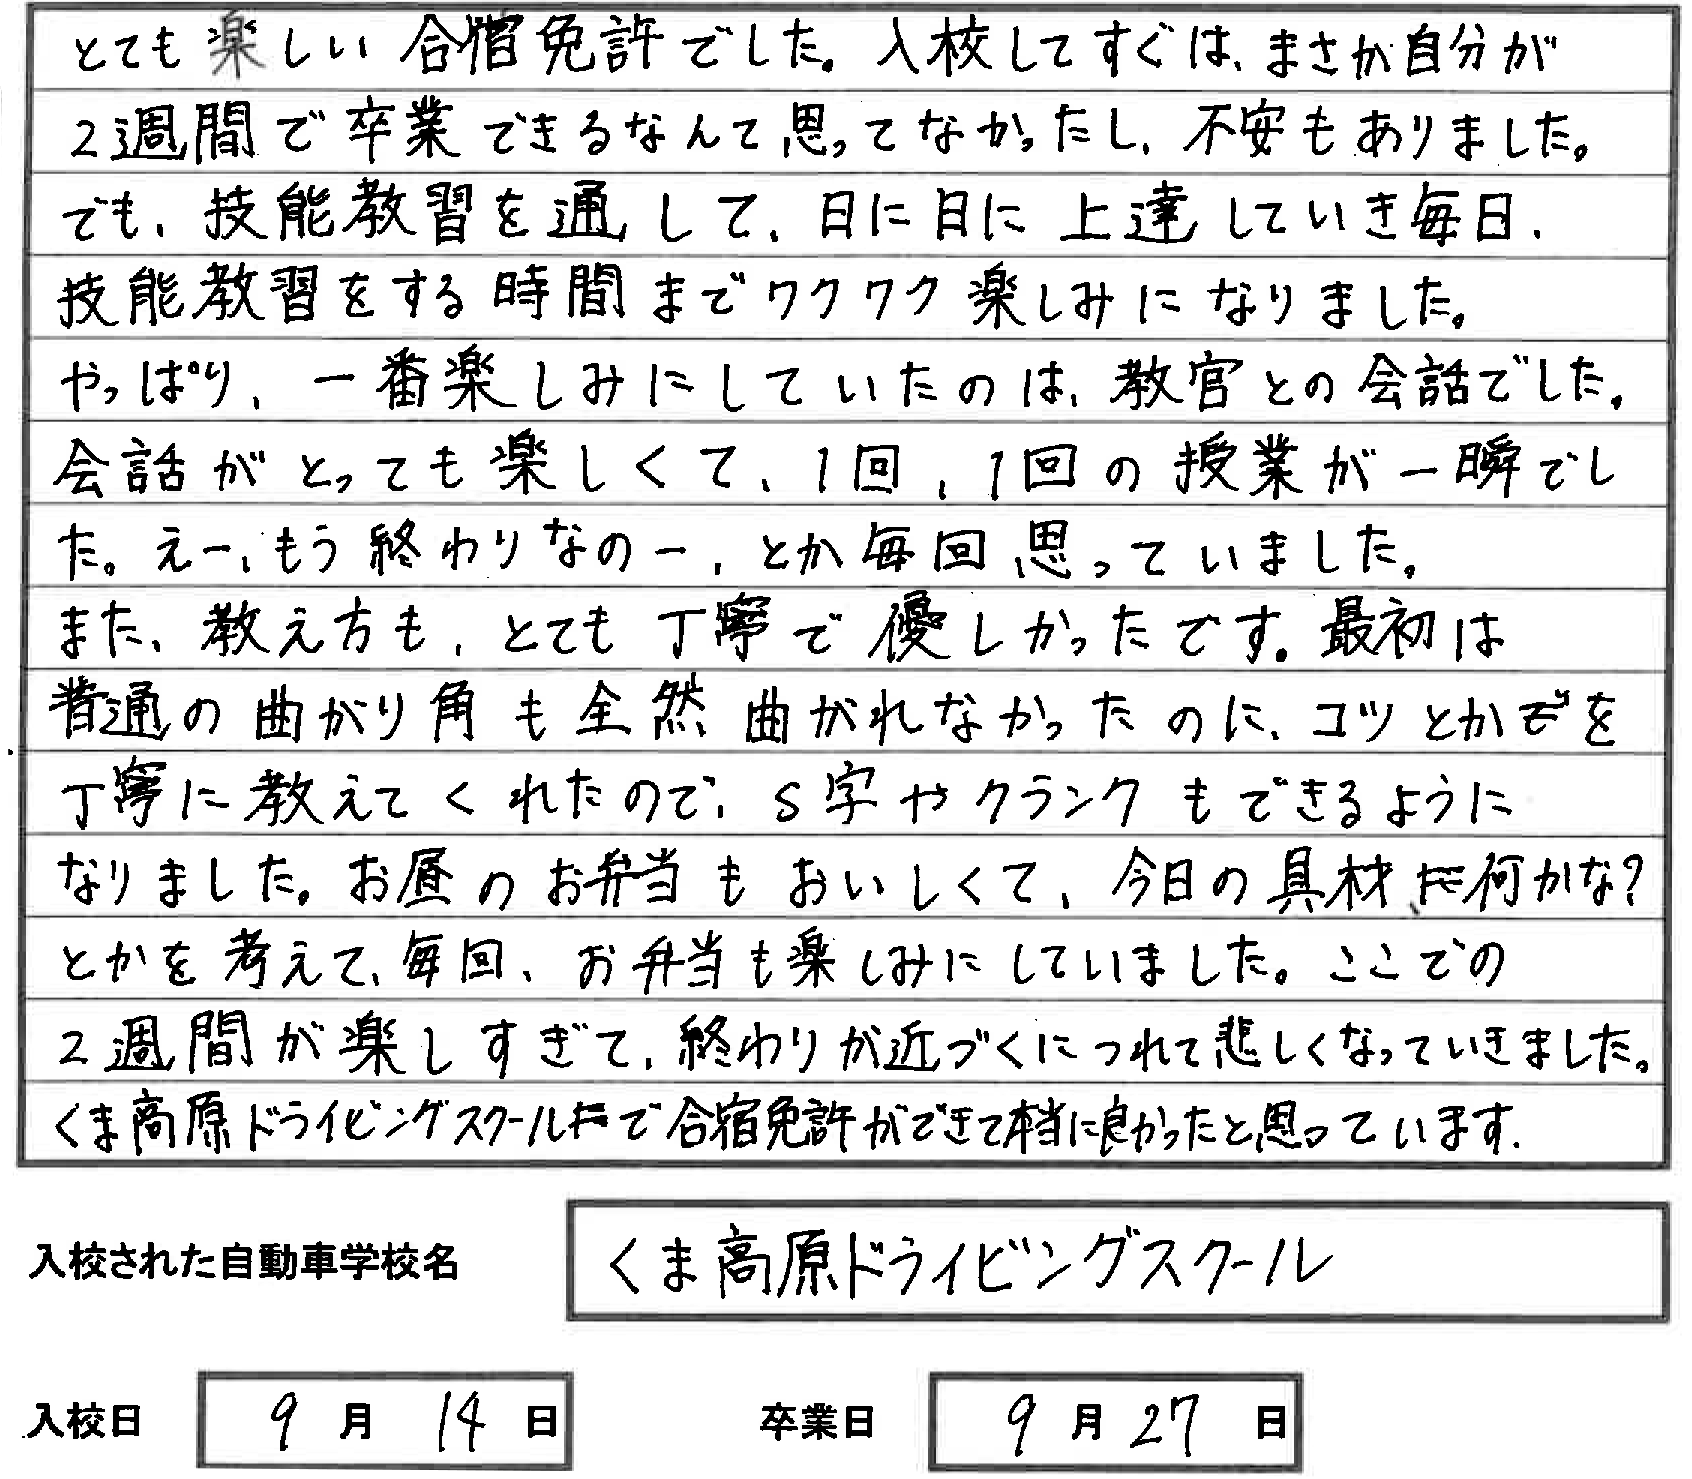 とても楽しい合宿免許でした。入校してすぐは、まさか自分が
2週間で卒業できるなんて思ってなかったし、不安もありました。
でも、技能教習を通して、日に日に上達していき毎日、
技能教習をする時間までワクワク楽しみになりました。
やっぱり、一番楽しみにしていたのは、教官との会話でした。
会話がとっても楽しくて、1回、1回の授業が一瞬でし
た。えー、もう終わりなのー、とか毎回思っていました。
また、教え方も、とても丁寧で優しかったです。最初は
普通の曲がり角も全然曲がれなかったのに、コツとかを
丁寧に教えてくれたので、S字やクランクもできるように
なりました。お昼のお弁当もおいしくて、今日の具材は何かな?
とかを考えて、毎回、お弁当も楽しみにしていました。ここでの
2週間が楽しすぎて、終わりが近づくにつれて悲しくなっていきました。
くま高原ドライビングスクールで合宿免許ができて本当に良かったと思っています.
入校された自動車学校名 くま高原ドライビングスクール
入校日 9月14日 卒業日 9月27日